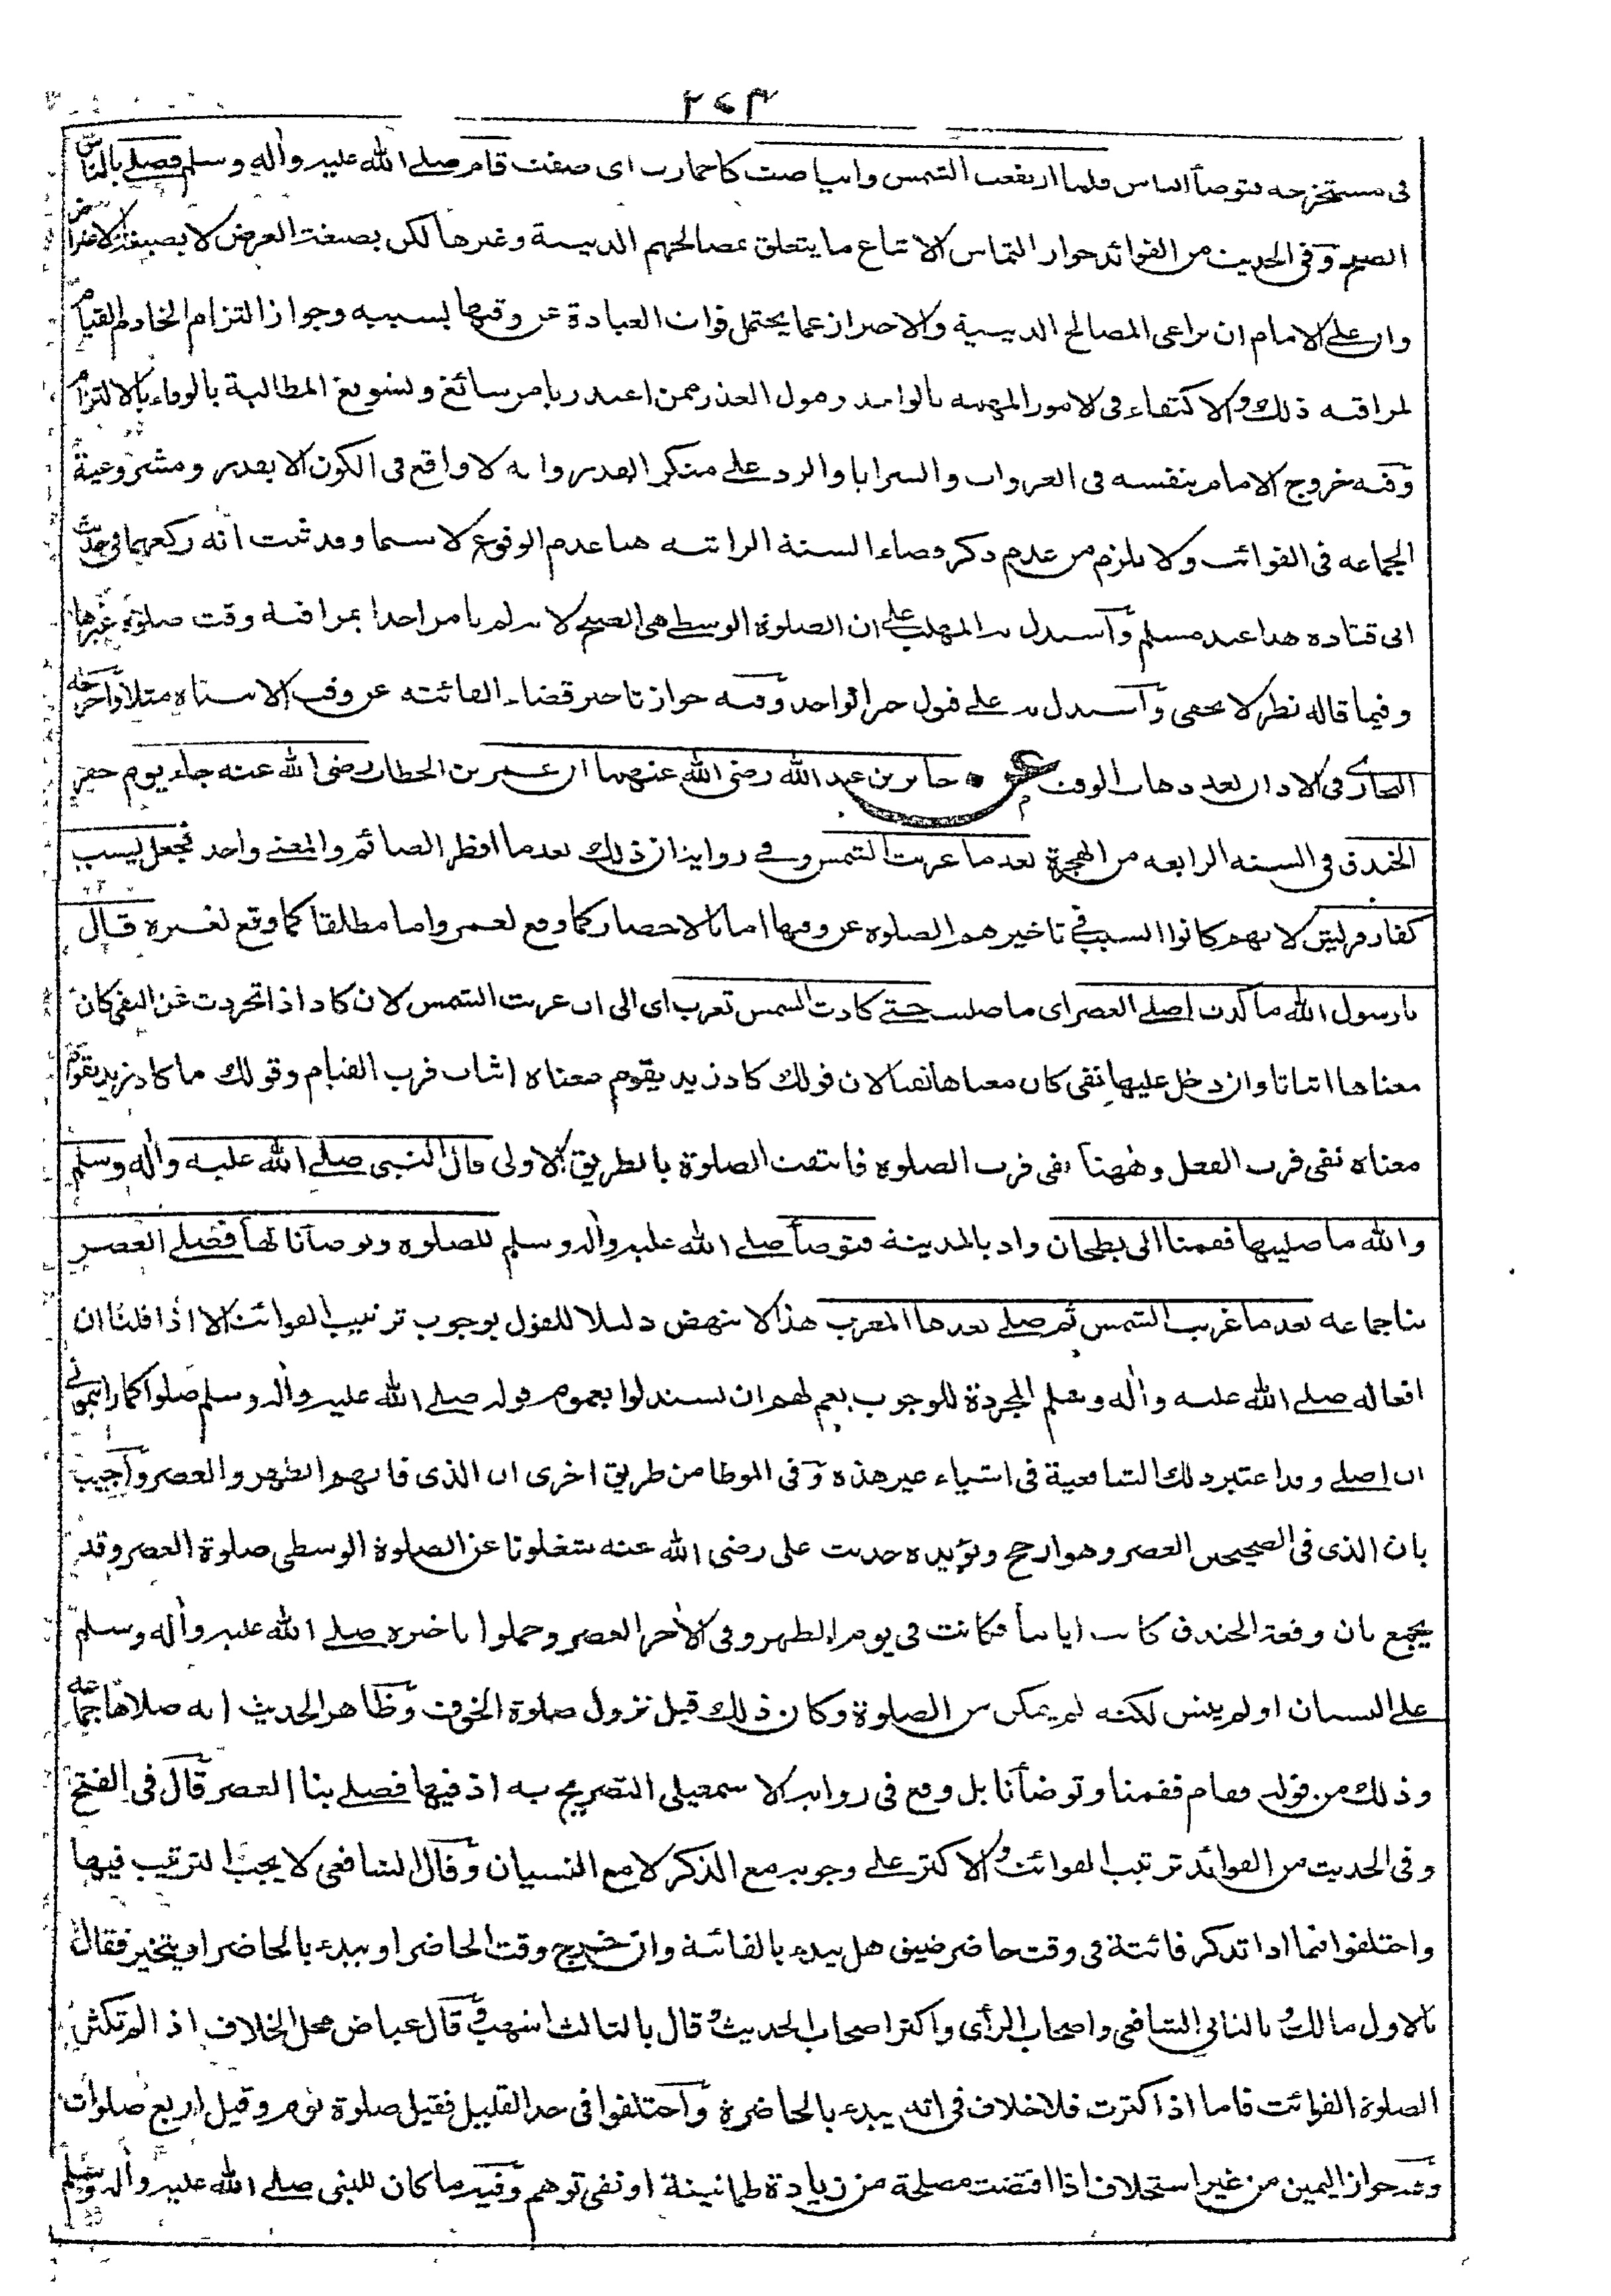 ٢٧٣
فى مستخرجه فتوضأ الناس فلما ارتفعت الشمس وابياضت كاحمارت اى صفت قام صلى الله عليه واٰله وسلم فصلى بالناس
الصبح وفى الحديث من الفوائد جواز التماس الاتباع ما يتعلق بمصالحهم الدينية وغيرها لكن بصيغة العرض لا بصيغة الاعتراض
وان على الامام ان يراعى المصالح الدينية والاحتراز عما يحتمل فوات العبادة عن وقتها بسببه وجواز التزام الخادم القيام
لمراقبة ذلك والاكتفاء فى الامور المهمة بالواحد وقبول العذر ممن اعتذر بامر سائغ وتسويغ المطالبة بالوفاء بالالتزام
وفيه خروج الامام بنفسه فى الغزوات والسرايا والرد على منكر القدر وانه لا واقع فى الكون الا بقدر ومشروعية
الجماعة فى الفوائت ولا يلزم من عدم ذكر قضاء السنة الراتبة هنا عدم الوقوع لا سيما وقد ثبت انه ركعهما فى حديث
ابى قتادة هذا عند مسلم وآستدل به المهلب على ان الصلوة الوسطى هى الصبح لانه لم يامر احدا بمراقبة وقت صلوة غيرها
وفيما قاله نظر لا يخفى وآستدل به على قبول خبر الواحد وفيه جواز تاخير قضاء الفائتة عن وقت الانتباه مثلا وآخرجه
البخارى فى الاذان بعد ذهاب الوقت عن جابر بن عبد الله رضى الله عنهما ان عمر بن الخطاب رضى الله عنه جاء يوم حفر
الخندق فى السنة الرابعة من الهجرة بعد ما غربت الشمس وفى رواية ان ذلك بعد ما افطر الصائم والمعنى واحد فجعل يسب
كفار قريش لانهم كانوا السبب فى تاخيرهم الصلوة عن وقتها اما بالاحصار كما وقع لعمر واما مطلقا كما وقع لغيره قال
يا رسول الله ما كدت اصلى العصر اى ما صليت حتى كادت الشمس تغرب اى الى ان غربت الشمس لان كاد اذا تجردت عن النفى كان
معناها اثباتا وان دخل عليها نفى كان معناها نفيا لان قولك كاد زيد يقوم معناه اثبات قرب القيام وقولك ما كاد زيد يقوم
معناه نفى قرب الفعل وهٰهنا نفى قرب الصلوة فانتفت الصلوة بالطريق الاولى قال النبى صلى الله عليه واٰله وسلم
والله ما صليتها فقمنا الى بطحان واد بالمدينة فتوضأ صلى الله عليه واٰله وسلم للصلوة وتوضأنا لها فصلى العصر
بنا جماعة بعد ما غربت الشمس ثم صلى بعدها المغرب هذا لا ينهض دليلا للقول بوجوب ترتيب الفوائت الا اذا قلنا ان
افعاله صلى الله عليه واٰله وسلم المجردة للوجوب نعم لهم ان يستدلوا بعموم قوله صلى الله عليه واٰله وسلم صلوا كما رايتمونى
ان اصلى وقد اعتبر ذلك الشافعية فى اشياء غير هذه وفى الموطا من طريق اخرى ان الذى فاتهم الظهر والعصر وآجيب
بان الذى فى الصحيحين العصر وهو ارجح ويؤيده حديث على رضى الله عنه شغلونا عن الصلوة الوسطى صلوة العصر وقد
يجمع بان وقعة الخندق كانت اياما فكانت فى يوم الظهر وفى الاٰخر العصر وحملوا تاخيره صلى الله عليه واٰله وسلم
على النسيان او لم ينس لكنه لم يتمكن من الصلوة وكان ذلك قبل نزول صلوة الخوف وظاهر الحديث انه صلاها جماعة
وذلك من قوله فقام فقمنا وتوضأنا بل وقع فى رواية الاسمعيلى التصريح به اذ فيها فصلى بنا العصر قال فى الفتح
وفى الحديث من الفوائد ترتيب الفوائت والاكثر على وجوبه مع الذكر لا مع النسيان وقال الشافعى لا يجب الترتيب فيها
واختلفوا فيما اذا تذكر فائتة فى وقت حاضر ضيق هل يبدء بالفائتة وان خرج وقت الحاضر او يبدء بالحاضر او يتخير فقال
بالاول مالك وبالثانى الشافعى واصحاب الرأى واكثر اصحاب الحديث وقال بالثالث اشهب وقال عياض محل الخلاف اذا لم تكثر
الصلوة الفوائت فاما اذا كثرت فلا خلاف فى انه يبدء بالحاضرة وآختلفوا فى حد القليل فقيل صلوة يوم وقيل اربع صلوات
وفيه جواز اليمين من غير استحلاف اذا اقتضت مصلحة من زيادة طمانينة او نفى توهم وفيه ما كان للنبى صلى الله عليه واٰله وسلم